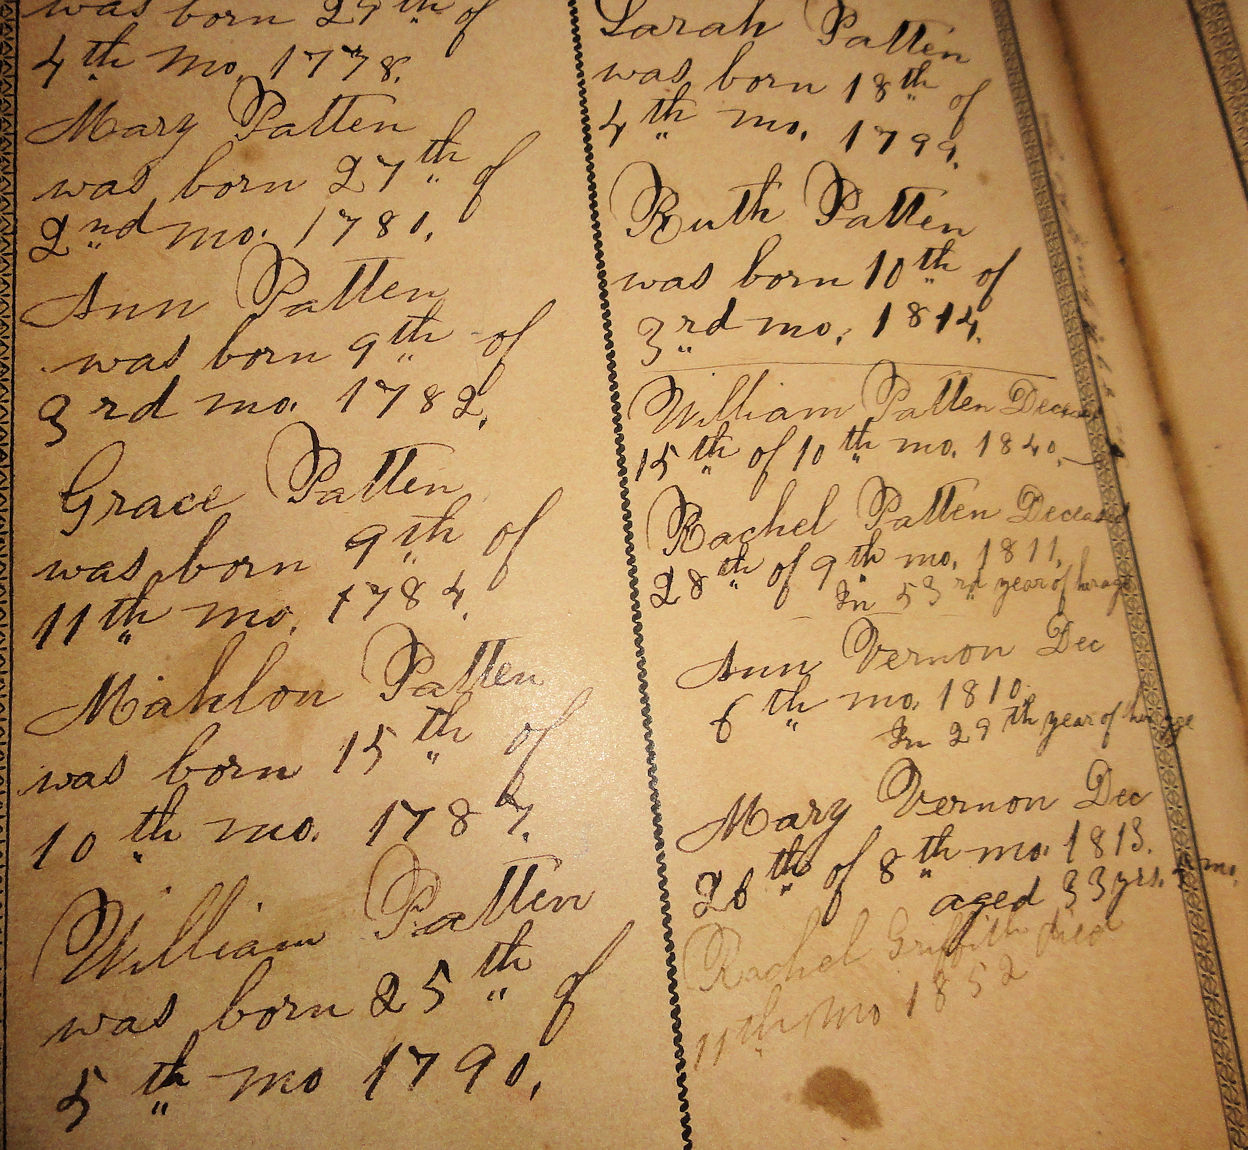 was born 29th of
4th mo. 1778.
Mary Patten
was born 27th of
2nd mo. 1781.
Ann Patten
was born 9th of
3rd mo. 1782.
Grace Patten
was born 9th of
11th mo. 1784.
Mahlon Patten
was born 15th of
10th mo. 1787.
William Patten
was born 25th of
5th mo 1790.
Sarah Patten
was born 18th of
4th mo. 1799.
Ruth Patten
was born 10th of
3rd mo. 1814.
William Patten
15th of 10th mo. 1840.
Rachel Patten Deceased
28th of 9th mo. 1811.
In 53rd year of her age
Ann Vernon Dec
6th mo. 1810.
In 29th year of her age
Mary Vernon Dec
26th of 8th mo. 1813.
aged 33 yrs. mo.
Rachel Griffith died
11th mo 1852